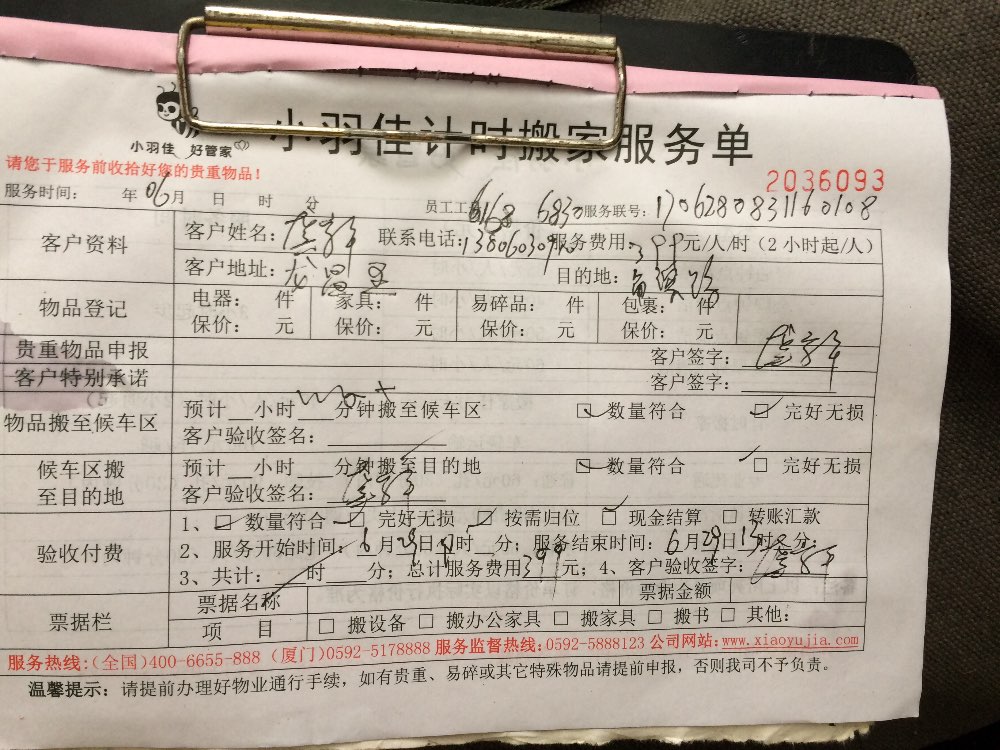 小羽佳计时搬家服务单
小羽佳 好管家
请您于服务前收拾好您的贵重物品！
2036093
服务时间： 年06月 日 时 分 员工工 6168 6830 服务联号：1706280831160108
客户资料 客户姓名： 联系电话： 服务费用： 元/人/时（2小时起/人）
客户地址： 目的地：
物品登记 电器： 件 家具： 件 易碎品： 件 包裹： 件
保价： 元 保价： 元 保价： 元 保价： 元
贵重物品申报 客户签字：
客户特别承诺 客户签字：
物品搬至候车区 预计__小时 分钟搬至候车区 □ 数量符合 □ 完好无损
客户验收签名：
候车区搬至目的地 预计__小时___分钟搬至目的地 □ 数量符合 □ 完好无损
客户验收签名：
验收付费 1、□ 数量符合 □ 完好无损 □ 按需归位 □ 现金结算 □ 转账汇款
2、服务开始时间：6月29日 时__分；服务结束时间：6月29日 时 分；
3、共计：___时___分；总计服务费用399元；4、客户验收签字：
票据栏 票据名称 票据金额
项 目 □ 搬设备 □ 搬办公家具 □ 搬家具 □ 搬书 □ 其他：
服务热线：(全国)400-6655-888（厦门)0592-5178888 服务监督热线：0592-5888123 公司网站：www.xiaoyujia.com
温馨提示：请提前办理好物业通行手续，如有贵重、易碎或其它特殊物品请提前申报，否则我司不予负责。